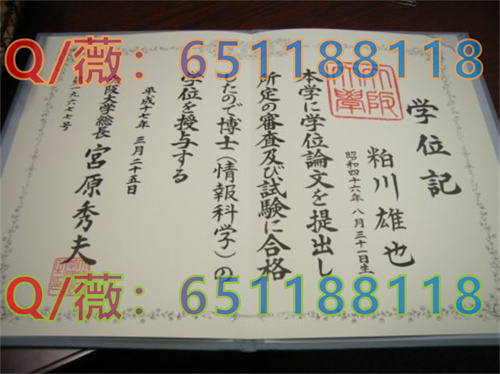 Q/薇：651188118
学位記
粕川雄也
昭和四十六年八月三十一日生
本学に学位論文を提出し
所定の審査及び試験に合格
したので博士（情報科学）の
学位を授与する
平成十七年三月二十五日
大阪大学総長 宮原秀夫
第一九六七号
Q/薇：651188118